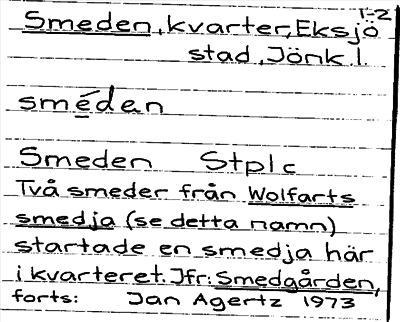 1-2
Smeden, kvarter, Eksjö
stad, Jönk. l.
smé̱dan
Smeden Stplc
Två smeder från Wolfarts
smedja (se detta namn)
startade en smedja här
i kvarteret. Jfr: Smedgården,
forts: Jan Agertz 1973